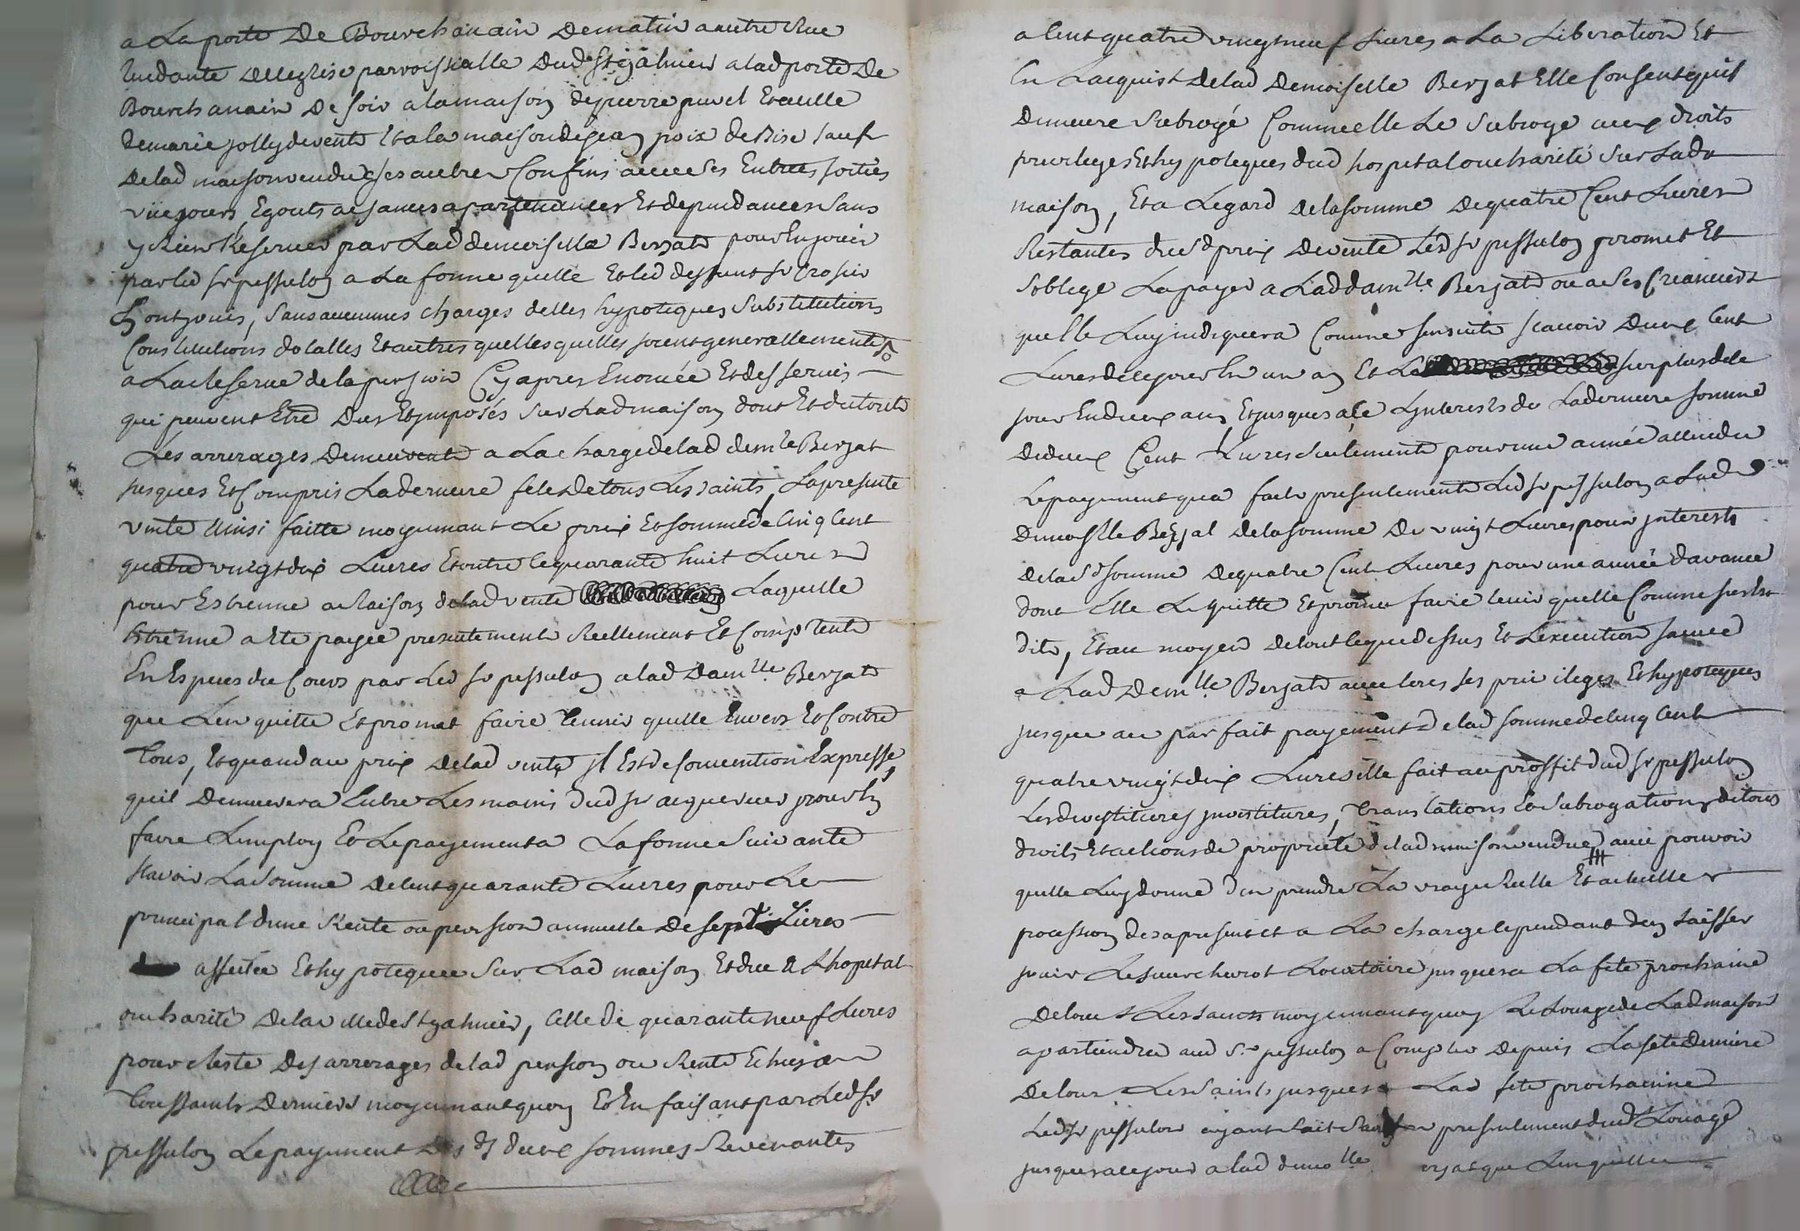 a La porte De Bourchanain Dematin a autre Rue
tendante delleglise parroissialle Dud St gjalmier a lad porte De
Bourchanain De soir a la maison de pierre puvel et a celle
de marie jolly de vente Et a la maison de jean poix de Bise sauf
De lad maison vendue ses autres Confins avec ses Entrees sorties
vüe jours, Egouts aisances apartenances Et dependances sans
y Rien Reserver par Lad demoiselle Berjat pour En jouir
par led sr pessulon a La forme quelle Et led deffunt sr
En ont jouis, sans aucunnes charges dettes hypoteques Substitutions
Constitutions dotalles Et autres quelles quelles soient generallement
a La Reserve de la pension Cy apres Enoncée Et des servis
qui peuvent Etre Dus Et imposés sur Lad maison dont Et du tout
Les arrerages Demeurent a La charge de lad demlle Berjat
jusques Et Compris La derniere fete de tous Les saints, La presente
vente Ainsi faitte moyennant Le prix Et somme de Cinq Cent
quatre vingt dix Livres Et outre ce quarante huit Livres
pour Estrenne a Raison de lad vente Laquelle
Etrenne a Eté payée presentement Reellement Et Comptent
En Especes du Cours par Led sr pessulon a lad Damlle Berjat
que Len quitte Et promet faire tenir quitte Envers Et Contre
Tous, Et quand au prix de lad vente il Est de Convention Expresse,
quil Demeurera Entre Les mains dud sr acquereur pour En
faire Lemploy Et Le payement a La forme Suivante
scavoir La somme de Cent quarante Livres pour Le
principal dune Rente ou pension annuelle de sept Livres
affectée Et hypotequée sur Lad maison Et due a Lhopital
ou charité de la ville de St galmier, Celle de quarante neuf Livres
pour Reste des arrerages de lad pension ou Rente Echus a
Toussaints Derniere moyennant quoy Et En faisant par Led sr
pessulon Le payement des ds deux sommes Revenantes
a Cent quatre vingt neuf Livres a La Liberation Et
En Lacquist de lad Demoiselle Berjat Elle Consent quil
Demeure subrogé Comme elle Le subroge aux droits
privileges Et hypoteques dud hospital ou charité sur Lade
maison, Et a Legard de la somme de quatre Cent Livres
Restantes dud prix de vente Led sr pessulon promet Et
soblige La payer a Lad damlle Berjat ou a ses Creanciers
quelle Luy indiquera Comme sensuit scavoir deux Cent
Livres de ce jour En un an Et Le surplus de ce
jour En deux ans Et jusques a ce Linterests de La derniere somme
de deux Cent Livres seulement pour une année attendu
Le payement qua fait presentement Led sr pessulon a Lad
demoislle Berjat de la somme de vingt Livres pour interests
de lad somme de quatre Cent Livres pour une année davance
dont Elle Le quitte Et promet faire tenir quelle Comme sus Est
dit, Et au moyen de tout ce que dessus Et Lexecution sauvée
a Lad demlle Berjat avec tous ses privileges Et hypoteques
jusque au parfait payement de lad somme de Cinq Cent
quatre vingt dix Livres Elle fait au proffit dud sr pessulon
Les devestitures investitures, translations Et subrogations de tous
droits Et actions de proprieté de lad maison vendue avec pouvoir
quelle Luy donne den prendre La vraye Reelle Et actuelle
pocession des a present Et a La charge cependant den Laisser
jouir Le sieur chevrot Locataire jusques a La fete prochaine
de tous Les saints moyennant quoy Le Louage de Lad maison
apartiendra aud sr pessulon a Compter depuis La fete derniere
de tous Les saints jusques a Lad fete prochaine
Led sr pessulon ayant fait presentement dud Louage
jusques a ce jour a lad demolle que Len quitte